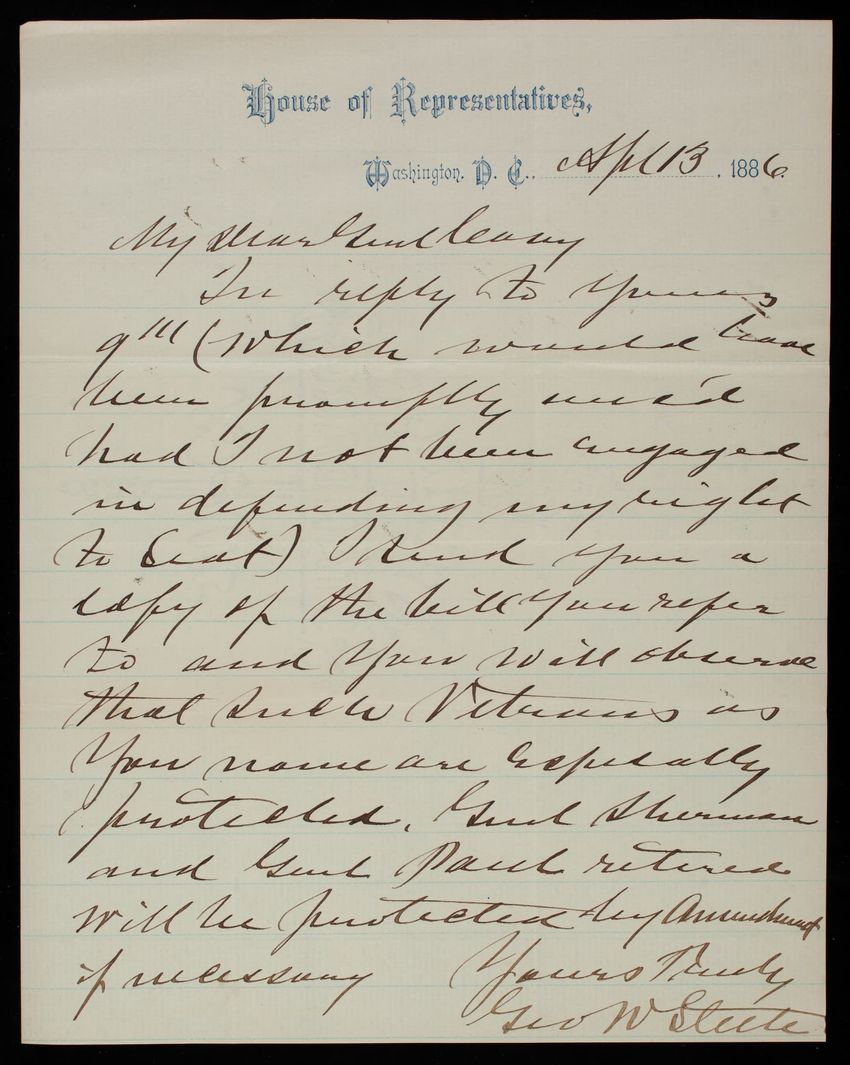 House of Representatives,
Washington, D. C., Apl 13, 1886.
My Dear Genl Casey
In reply to Yours
9th (which would have
been promptly ans'd
had I not been engaged
in defending my right
to Seat) I send you a
copy of the bill you refer
to and You will observe
that such Veterans as
You name are Especially
protected. Genl Sherman
and Genl Paul retired
will be protected by Amendment
if necessary Yours Truly
Geo W Steele